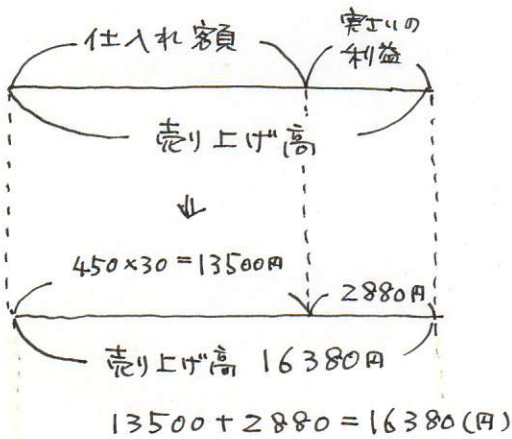 仕入れ額
実さいの
利益
売り上げ高
450×30=13500円
2880円
売り上げ高 16380円
13500+2880=16380(円)